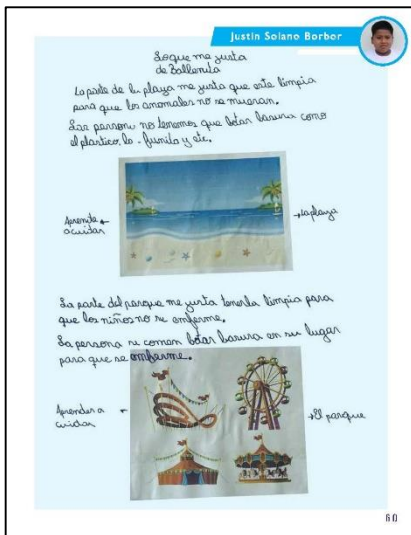 Justin Solano Borbor
Lo que me gusta
de Ballenita
La parte de la playa me gusta que este limpia
para que los anomales no se mueran.
Las persona no tenemos que botar basura como
el plastico, la funita y etc.
Aprende
a cuidar
la playa
La parte del parque me gusta tenerla limpia para
que los niños no se enferme.
La persona si comen botar basura en su lugar
para que se enferme.
Aprender a
cuidar
El parque
60